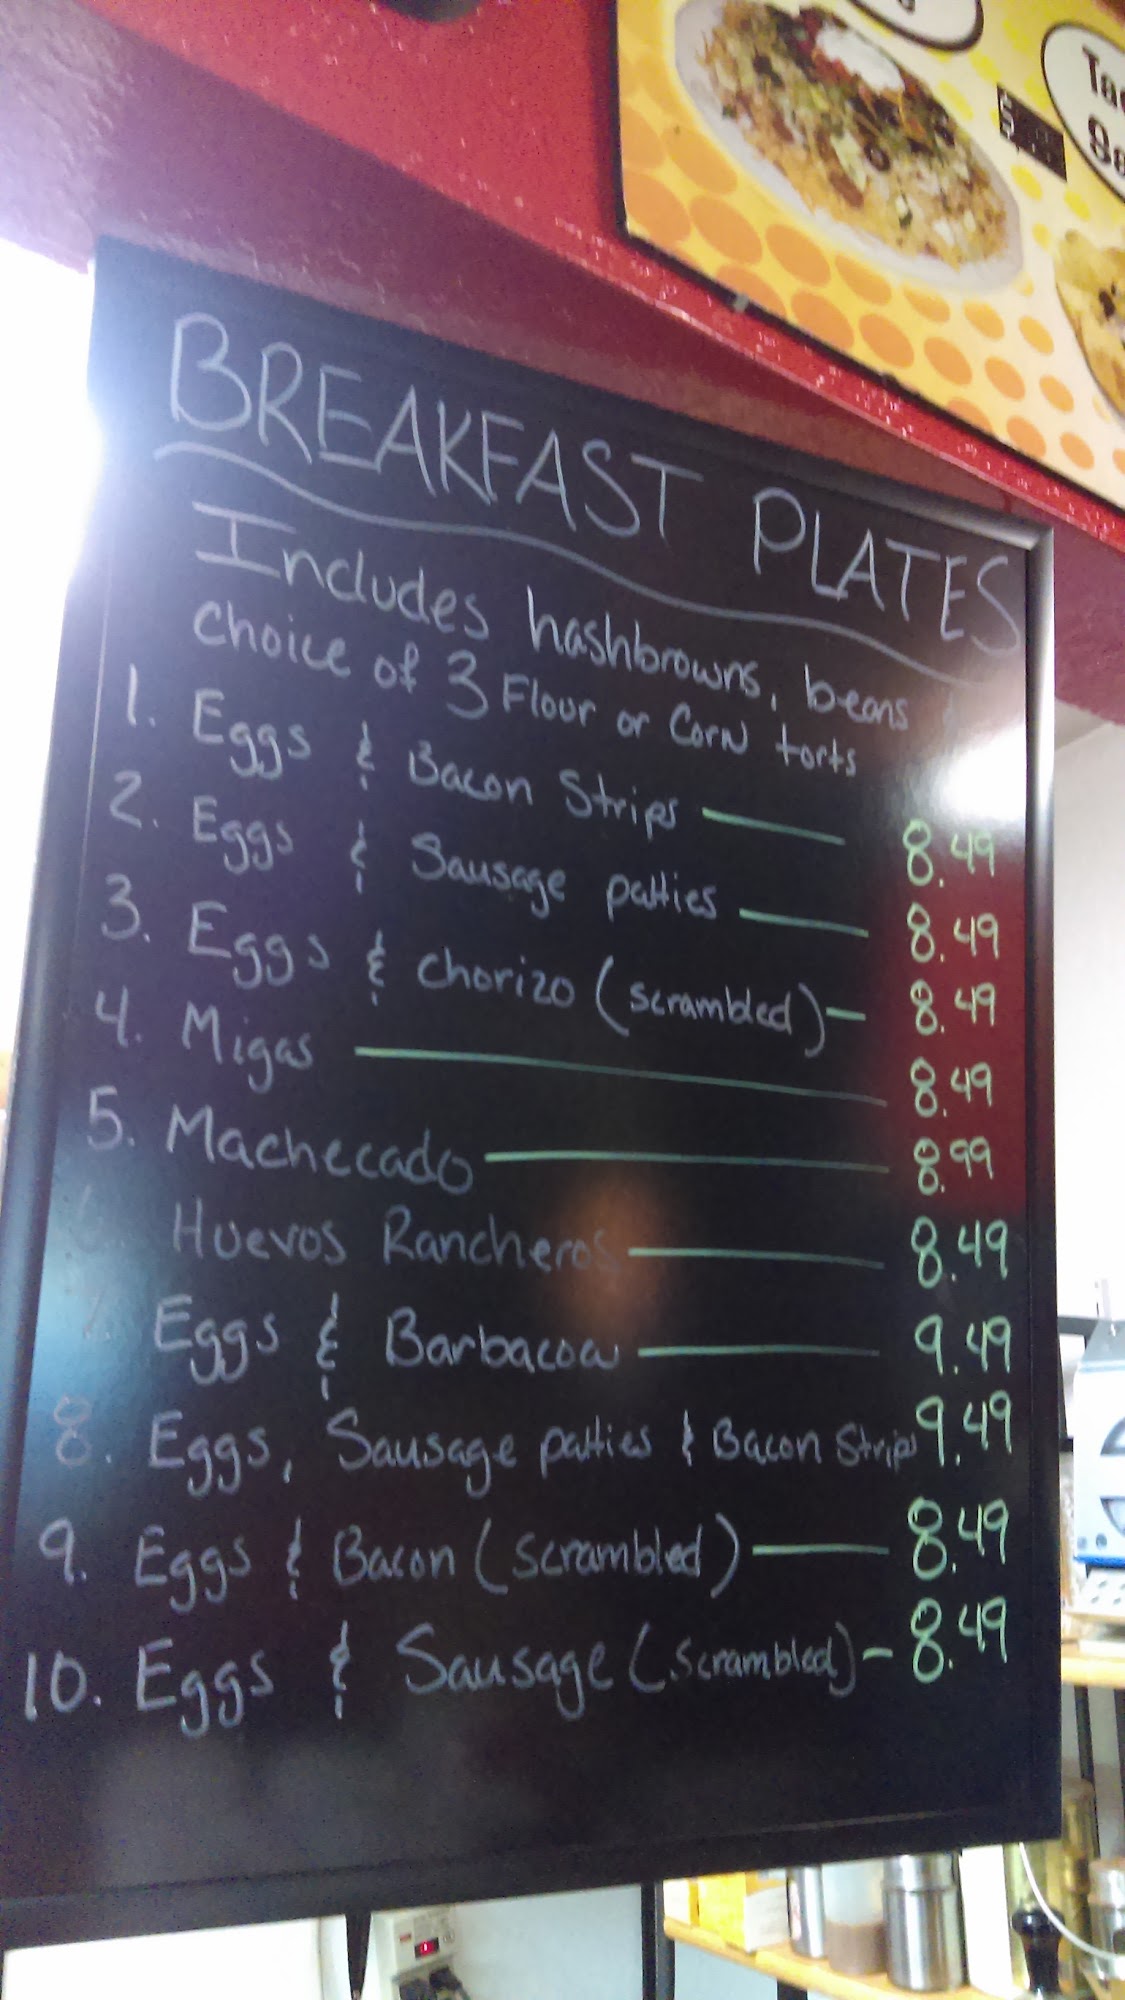 Ta
Sa
BREAKFAST PLATES
Includes hashbrowns, beans &
choice of 3 Flour or Corn torts
1. Eggs & Bacon Strips 8.49
2. Eggs & Sausage patties 8.49
3. Eggs & Chorizo (scrambled) 8.49
4. Migas 8.49
5. Machecado 8.99
6. Huevos Rancheros 8.49
7. Eggs & Barbacoa 9.49
8. Eggs, Sausage patties & Bacon Strips 9.49
9. Eggs & Bacon (scrambled) 8.49
10. Eggs & Sausage (scrambled) 8.49